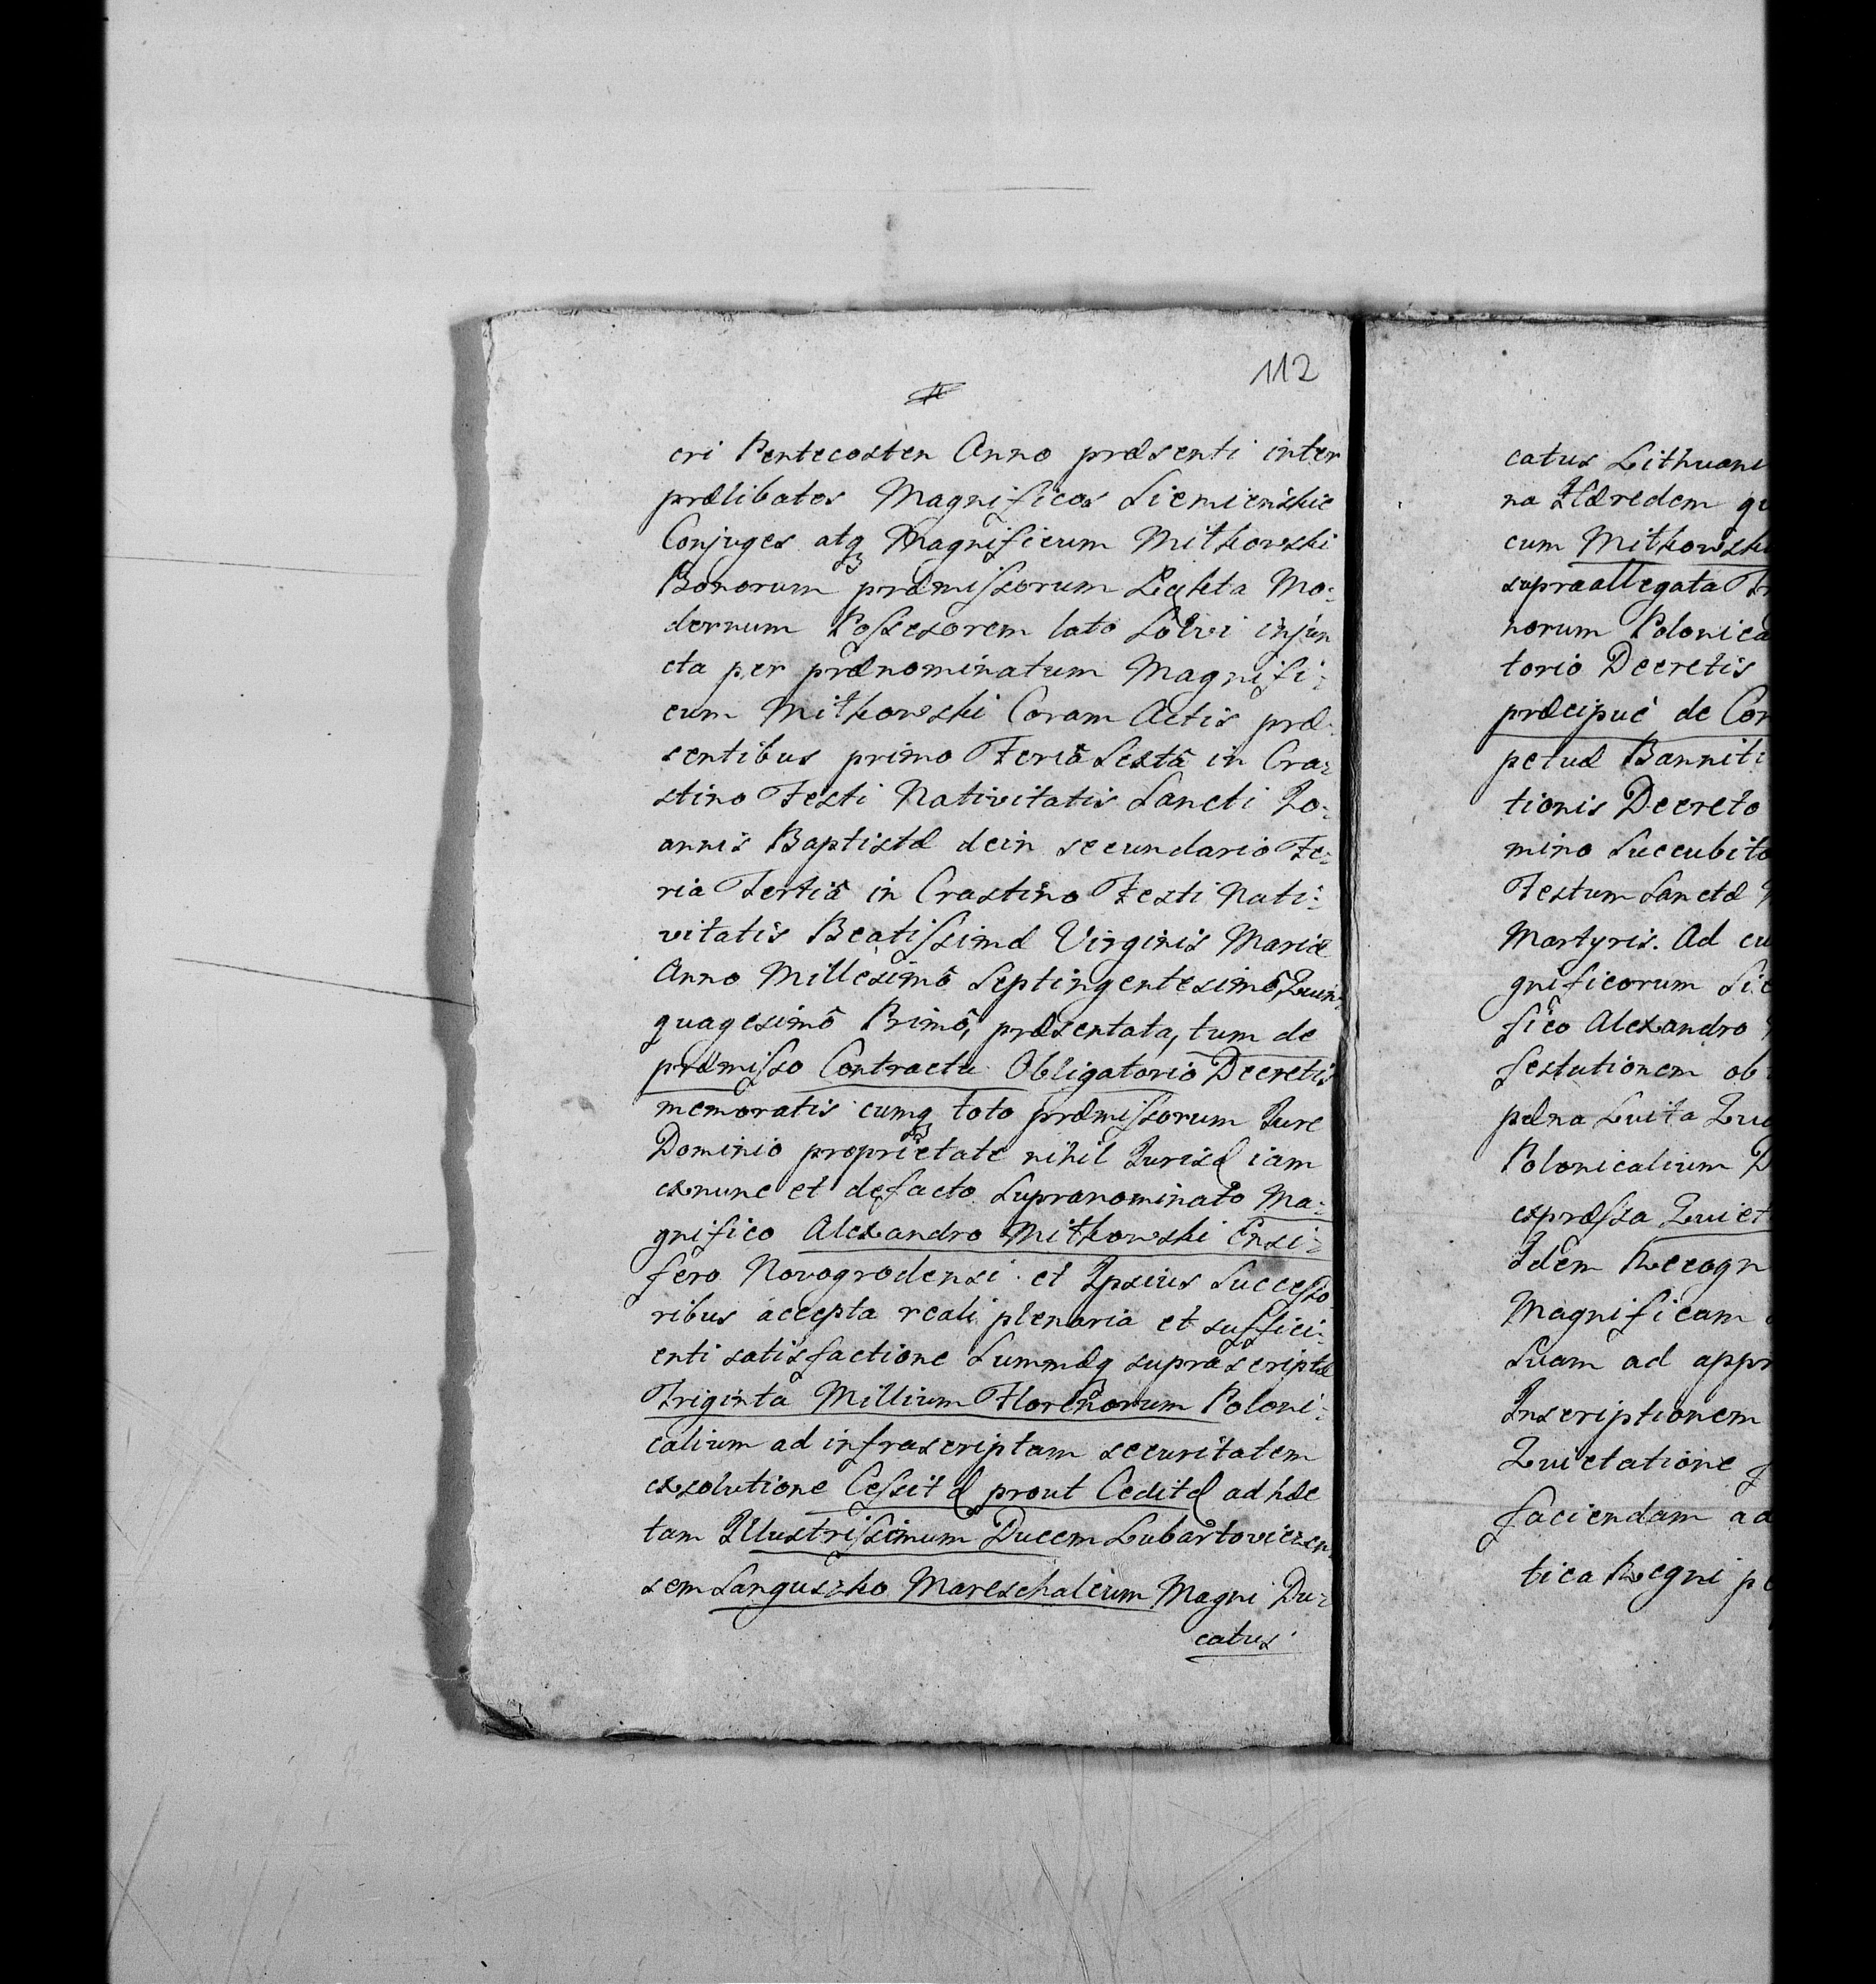 112
cri Pentecosten Anno præsenti inter
prælibatos Magnificos Siemieńskie
Conjuges atq3 Magnificum Mithowski
Bonorum præmissorum Mo:
dernum Possesorem lato Solvi injun
cta per prænominatum Magnifi:
cum Mithowski Coram Actis præ:
sentibus primo Feriâ Sextâ in Cra:
stino Festi Nativitatis Sancti Jo:
annis Baptistæ dein secundario Fe:
ria Tertiâ in Crastino Festi Nati:
vitatis Beatissimæ Virginis Mariæ
Anno Millesimô Septingentesimô, Quin:
quagesimô Primô, præsentata, tum de
præmisso Contractu Obligatorio Decretis
memoratis cumq3 toto præmissorum Jure
Dominio proprietate nihil Juris & iam
exnunc et defacto Supranominato Ma:
gnifico Alexandro Mithowski Ensi:
fero Novogrodensi et Ipsius Successo
ribus accepta reali plenaria et suffici:
enti satisfactione Summæq3 suprascriptæ
Triginta Millium Florenorum Poloni:
calium ad infrascriptam securitatem
exsolutione Cessit & prout Cedit & ad hæc
tam Illustrissimum Ducem Lubartoviczen
sem Sanguszko Mareschalcum Magni Du:
catus
catus Lithuani
na Hæredem qu
cum Mithowski
supraallegata Tr
norum Polonica
torio Decretis
præcipuè de Con
petuæ Banniti
tionis Decreto
mino Succubito
Festum Sanctæ
Martyris. Ad cu
gnificorum Sie
fico Alexandro
festationem ob
pæna Luita Qui
Polonicalium D
expressa Quiet
Idem Recogn
Magnificam
Suam ad appr
Inscriptionem
Quietatione
faciendam ad
tica Regni p